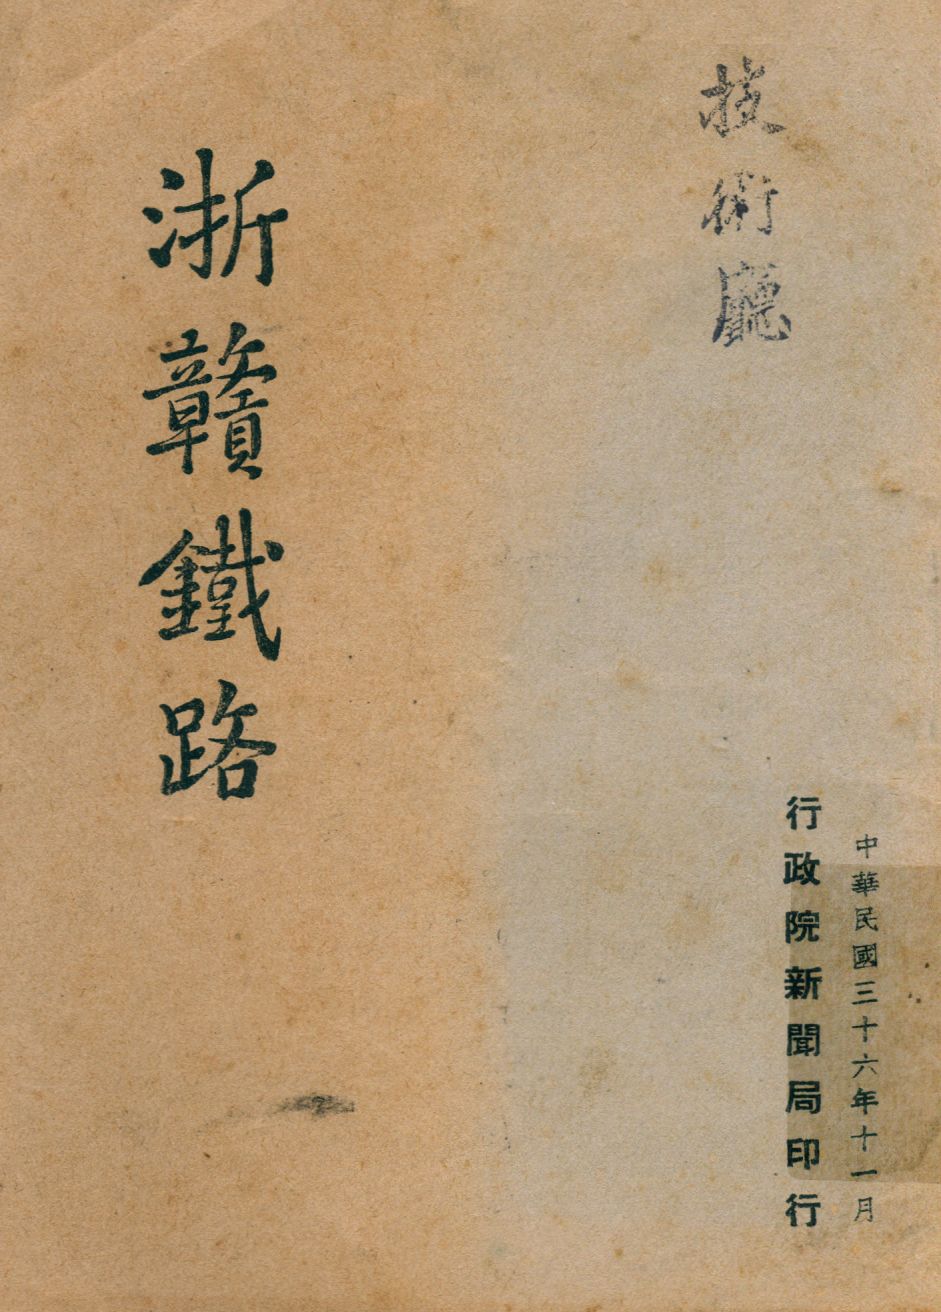 技術廳
中華民國三十六年十一月
行政院新聞局印行
浙贛鐵路